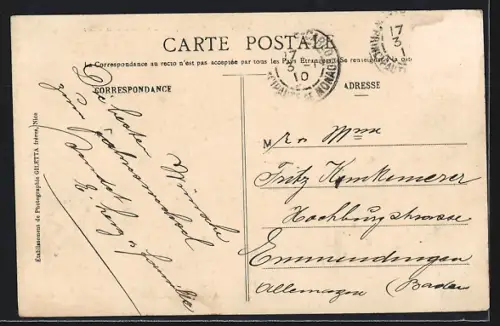 CARTE POSTALE
La Correspondance au recto n'est pas acceptée par tous les Pays Etrangers. Se renseigner à la
CORRESPONDANCE
ADRESSE
Etablissement de Photographie GILETTA frères, Nice
17
3
10
PRINCIPAUTÉ DE MONACO
17
3
Die besten Wünsche
zum
sendet
E. & Familie
Mr & Mme
Fritz
Hochburgstrasse
Emmendingen
Allemagne (Baden